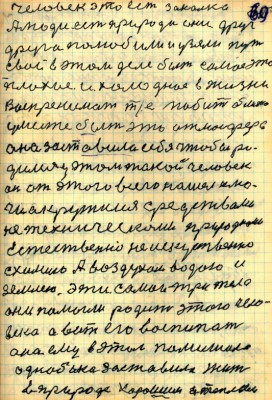 69
человек это ест закалка
А люди ест природа они друг
друга полюбили и узяли пут
свой в этом деле быт самое это
плохое и холодное в жизни
Воспринимат те побит
уместе быт это атмосфера
она заставила себя чтобы ро-
дился у этом такой человек
он от этого всего нашол клю-
чи окружился средствами
не техническоми природном
Естественно не искуственно
схимию А воздухом водою и
землею. эти самои три тела
они помогли родит этого чело-
века а вот его воспитат
она ему в этом помишала
однобока заставила жит
в природе хорошим и теплом